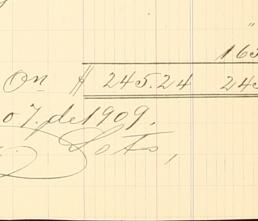 "
163
On $ 245.24 245
o 7. de 1909.
Soto,